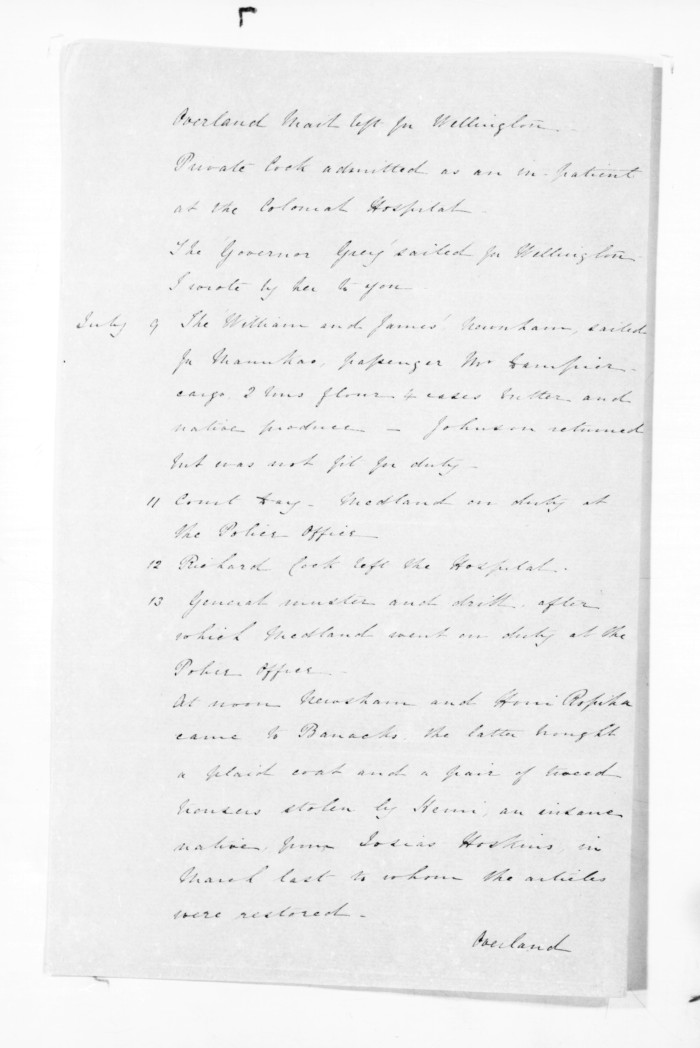 Overland Mail left for Wellington.
Private Cook admitted as an in-patient
at the Colonial Hospital.
The 'Governor Grey' sailed for Wellington.
I wrote by her to you.
July 9 The 'William and James', Newnham, sailed
for Manukao, passenger Mr Dampier -
cargo, 2 tons flour 4 cases butter and
native produce - Johnson returned
but was not fit for duty -
11 Court Day - Medland on duty at
the Police Office
12 Richard Cook left the Hospital.
13 General muster and drill, after
which Medland went on duty at the
Police Office
At noon Newsham and Honi Ropiha
came to Barracks, the latter brought
a plaid coat and a pair of tweed
trousers stolen by Kemi, an insane
native, from Josias Hoskins, in
March last to whom the articles
were restored -
Overland